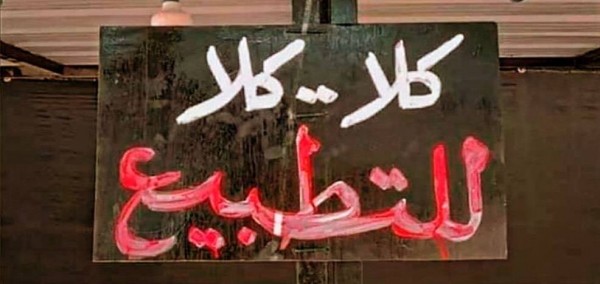 كلا - كلا
للتطبيع